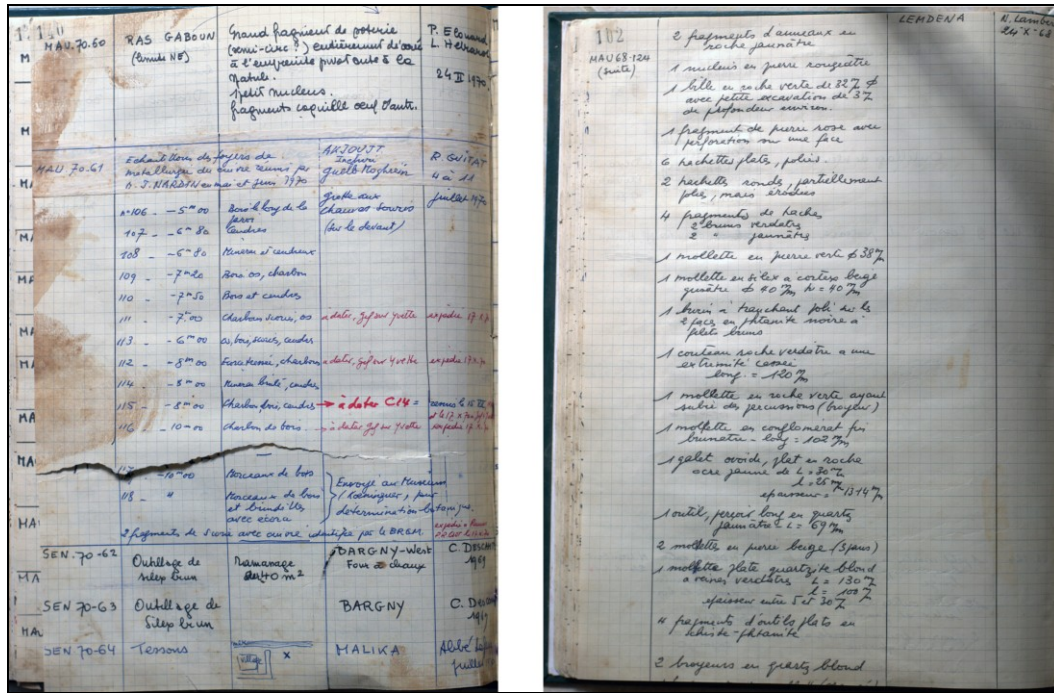 MAU.70.60
RAS GABOUN
(limite NE)
Grand fragment de poterie
(semi-circ ?) entièrement décoré
à l'empreinte pivotante à la
spatule.
petit nucleus.
fragments coquille oeuf d'autr.
P. Elouard
L. Hébrard
24 II 1970
MAU 70.61
Echantillons des foyers de
metallurgie du cuivre réunis par
J. NARDIN en mai et juin 1970
AKJOUJT
guelb Moghrein
R. GUITAT
4 à 11
juillet 1970
grotte aux
chauves souris
(sur le devant)
n°106 - -5m00 Bois le long de la
paroi
107 - -6m80 Cendres
108 - -6m80 Minerai et cendreux
109 - -7m20 Bois os, charbon
110 - -7m50 Bois et cendres
111 - -7m00 Charbon scories, os à dater, Gif sur Yvette expédié 17 X 70
113 - -6m00 os, bois, scories, cendres
112 - -8m00 charbon à dater, Gif sur Yvette expédié 17 X 70
114 - -8m00 Minerai brulé, cendres
115 - -8m00 Charbon, cendres → à dater C14 =
116 - -10m00 charbon de bois à dater Gif sur Yvette expédié 17 X 70
117 -10m00 Morceaux de bois
118 - " Morceaux de bois
et brindilles
avec écorce
Envoyé au Museum
(Koeninguer) pour
determination botanique.
2 fragments de scorie avec cuivre identifiés par le BRGM
SEN.70-62
Outillage de
silex brun
Ramassage
sur 40 m²
BARGNY-West
Four à chaux
C. DESCAMPS
1969
SEN 70-63
Outillage de
Silex brun
BARGNY
C. Descamps
1969
SEN 70-64
Tessons
village
x
MALIKA
Abbé
juillet
102
LEMDENA
N. Lambert
24-X-68
MAU 68-124
(suite)
2 fragments d'anneaux en
roche jaunâtre
1 nucleus en pierre rougeatre
1 bille en roche verte de 32 m/m ϕ
avec petite excavation de 3 m/m
de profondeur environ.
1 fragment de pierre rose avec
perforation sur une face
6 hachettes plates, polies.
2 hachettes rondes, partiellement
polies, mais érodées
4 fragments de haches
2 bruns verdatres
2 " jaunâtres
1 mollette en pierre verte ϕ 38 m/m
1 mollette en silex à cortex beige
grisâtre ϕ 40 m/m h = 40 m/m
1 burin à tranchant poli sur les
2 faces en phtanite noire à
filets bruns
1 couteau roche verdatre a une
extremité cassée
long. = 120 m/m
1 mollette en roche verte ayant
subie des percussions (broyeur)
1 mollette en conglomerat fin
brunatre - long = 102 m/m
1 galet ovoide, plat en roche
ocre jaune de L = 30 m/m
l = 26 m/m
epaisseur = 13-14 m/m
1 outil, perçoir long en quartz
jaunâtre L = 69 m/m
2 mollettes en pierre beige (3 faces)
1 mollette plate quartzite blond
a veines verdatres L = 130 m/m
l = 100 m/m
epaisseur entre 5 et 30 m/m
4 fragments d'outils plats en
schiste-phtanite
2 broyeurs en quartz blond